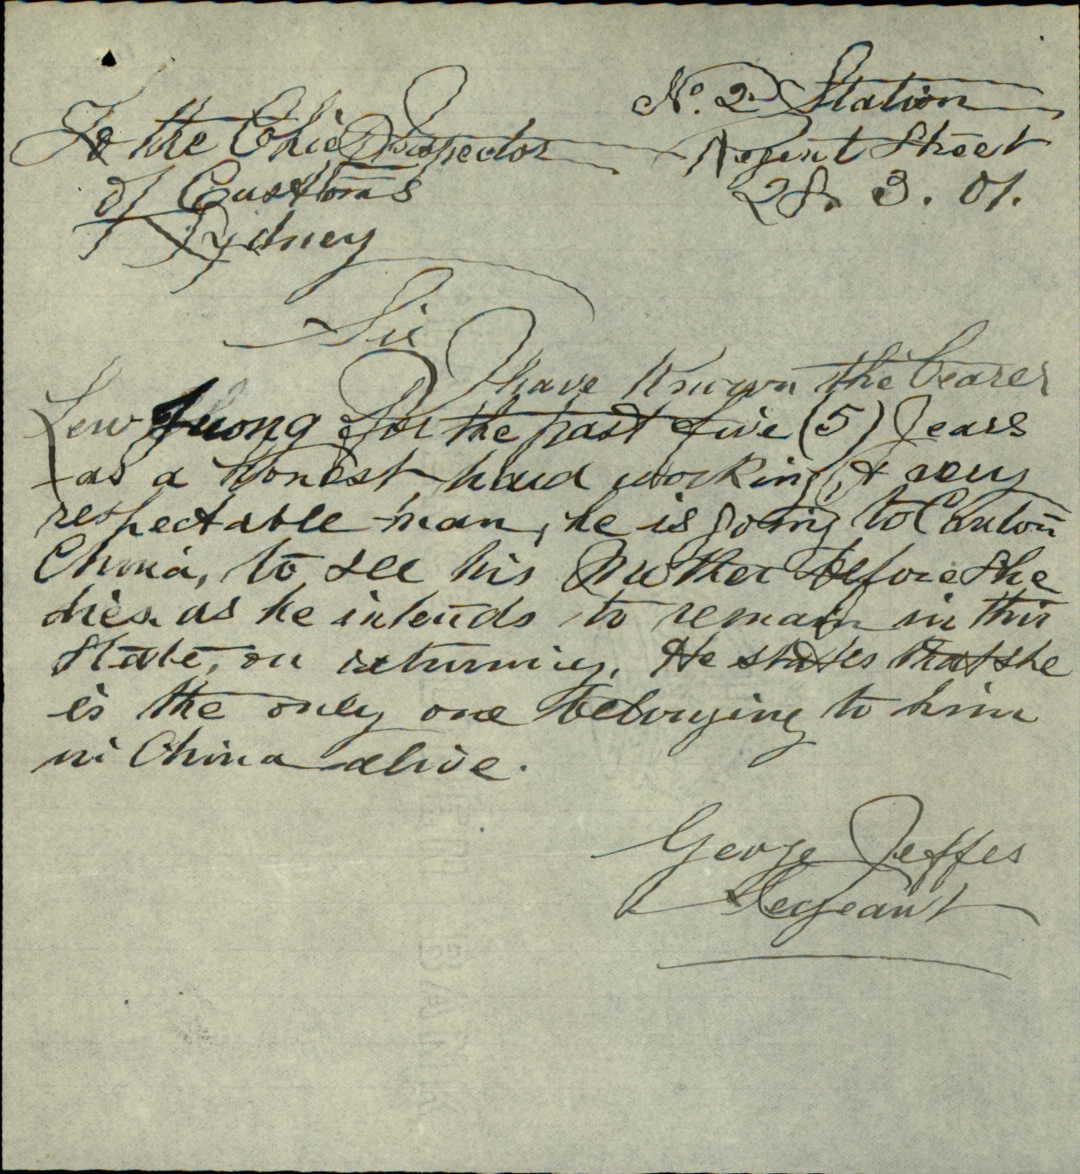 No. 2 Station
Regent Street
28. 3. 01.
To the Chief Inspector
of Customs
Sydney
Sir
I have known the bearer
Lew for the past five (5) Years
as a honest hard working, & very
respectable man, he is going to Canton
China, to see his Mother before she
dies. as he intends to remain in this
State, on returning. He states that she
is the only one belonging to him
in China alive.
George Jeffes
Sergeant